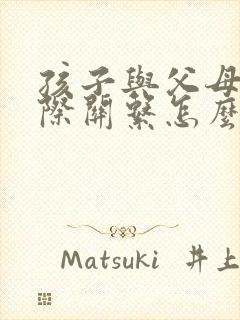 孩子與父母
際關繫怎麼
Matsuki 井上